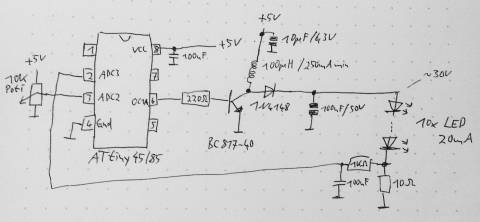 +5V
10µF/43V
+5V
1 VCC 8
+5V
100nF
100µH/250mA min
10k
Poti
2 ADC3 7
~30V
3 ADC2 OCM 6
220Ω
1N4148
100nF/50V
10x LED
20mA
4 Gnd 5
BC817-40
ATtiny 45/85
1kΩ
100nF
10Ω